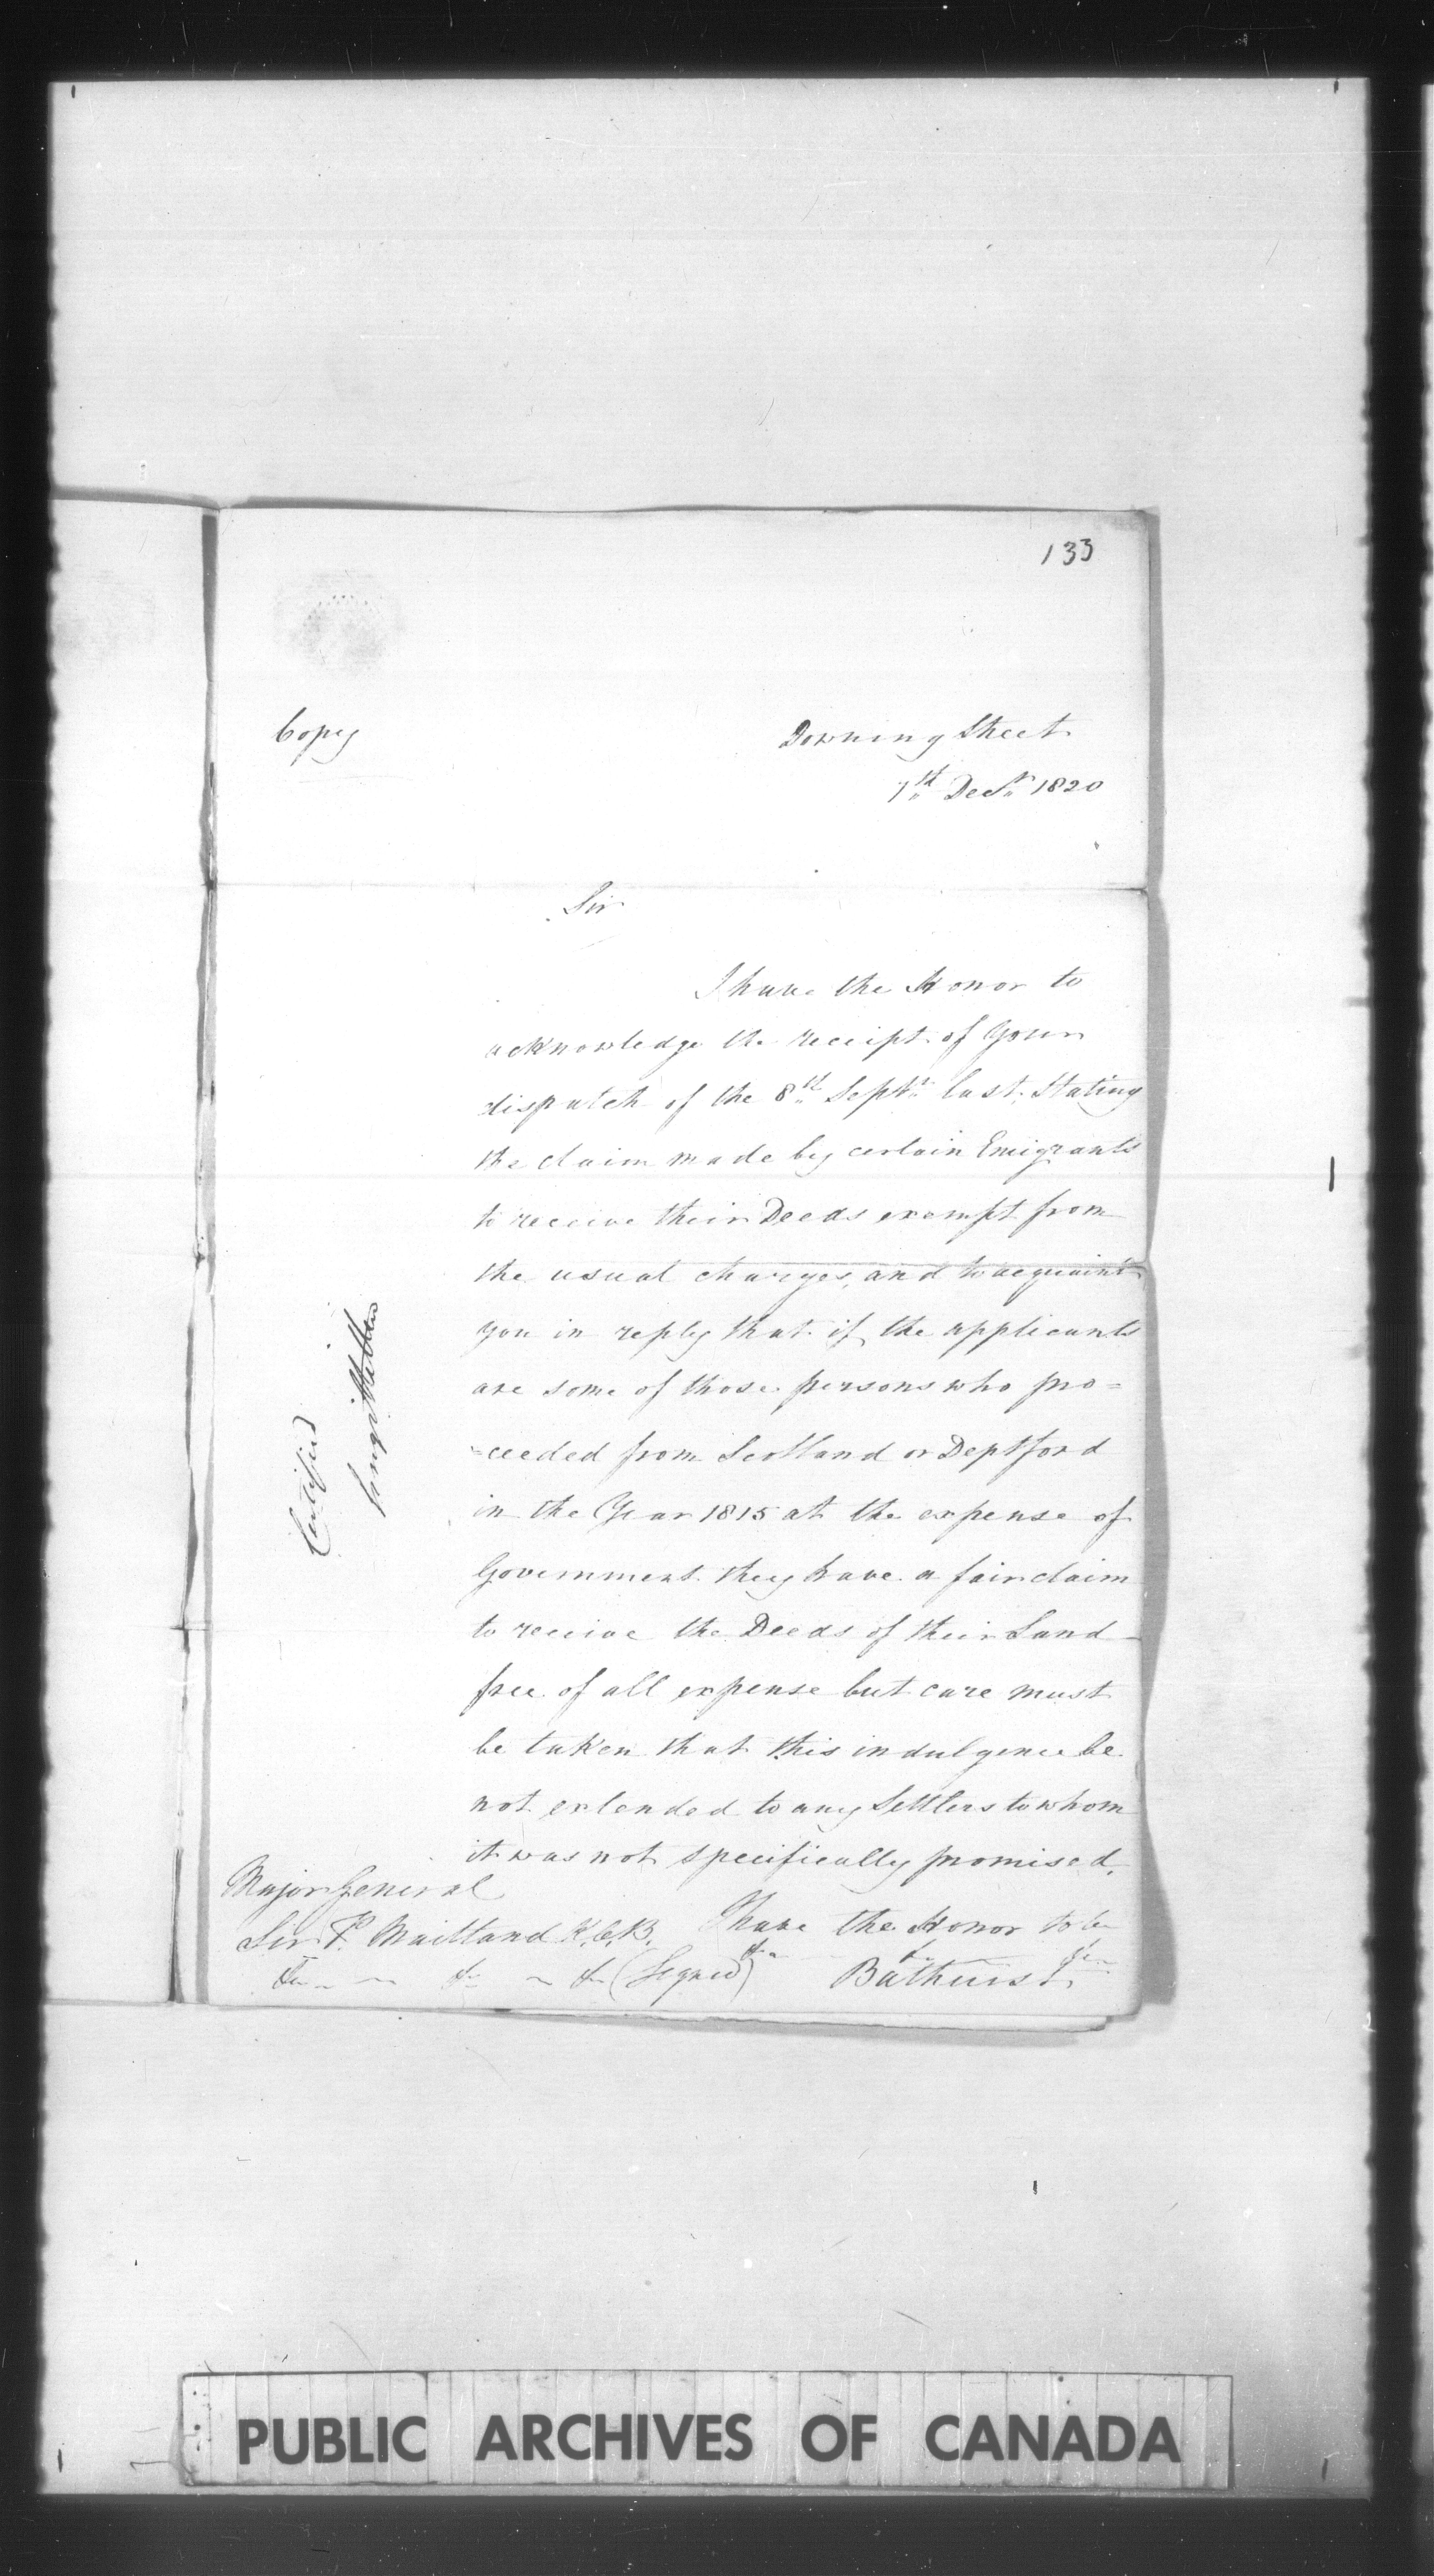 133
Copy
Downing Street
7th Decr 1820
Sir
I have the Honor to
acknowledge the receipt of Your
dispatch of the 8th Septr last, Stating
the claim made by certain Emigrants
to receive their Deeds exempt from
the usual charges, and to acquaint
you in reply that if the applicants
are some of those persons who pro=
=ceeded from Scotland or Deptford
in the Year 1815 at the expense of
Government they have a fair claim
to receive the Deeds of their Land
free of all expense but care must
be taken that this indulgence be
not extended to any Settlers to whom
it was not specifically promised.
I have the Honor to be
&c &c &c
(Signed) Bathurst
Major General
Sir P. Maitland K.C.B.
&c &c &c
Certified
PUBLIC ARCHIVES OF CANADA